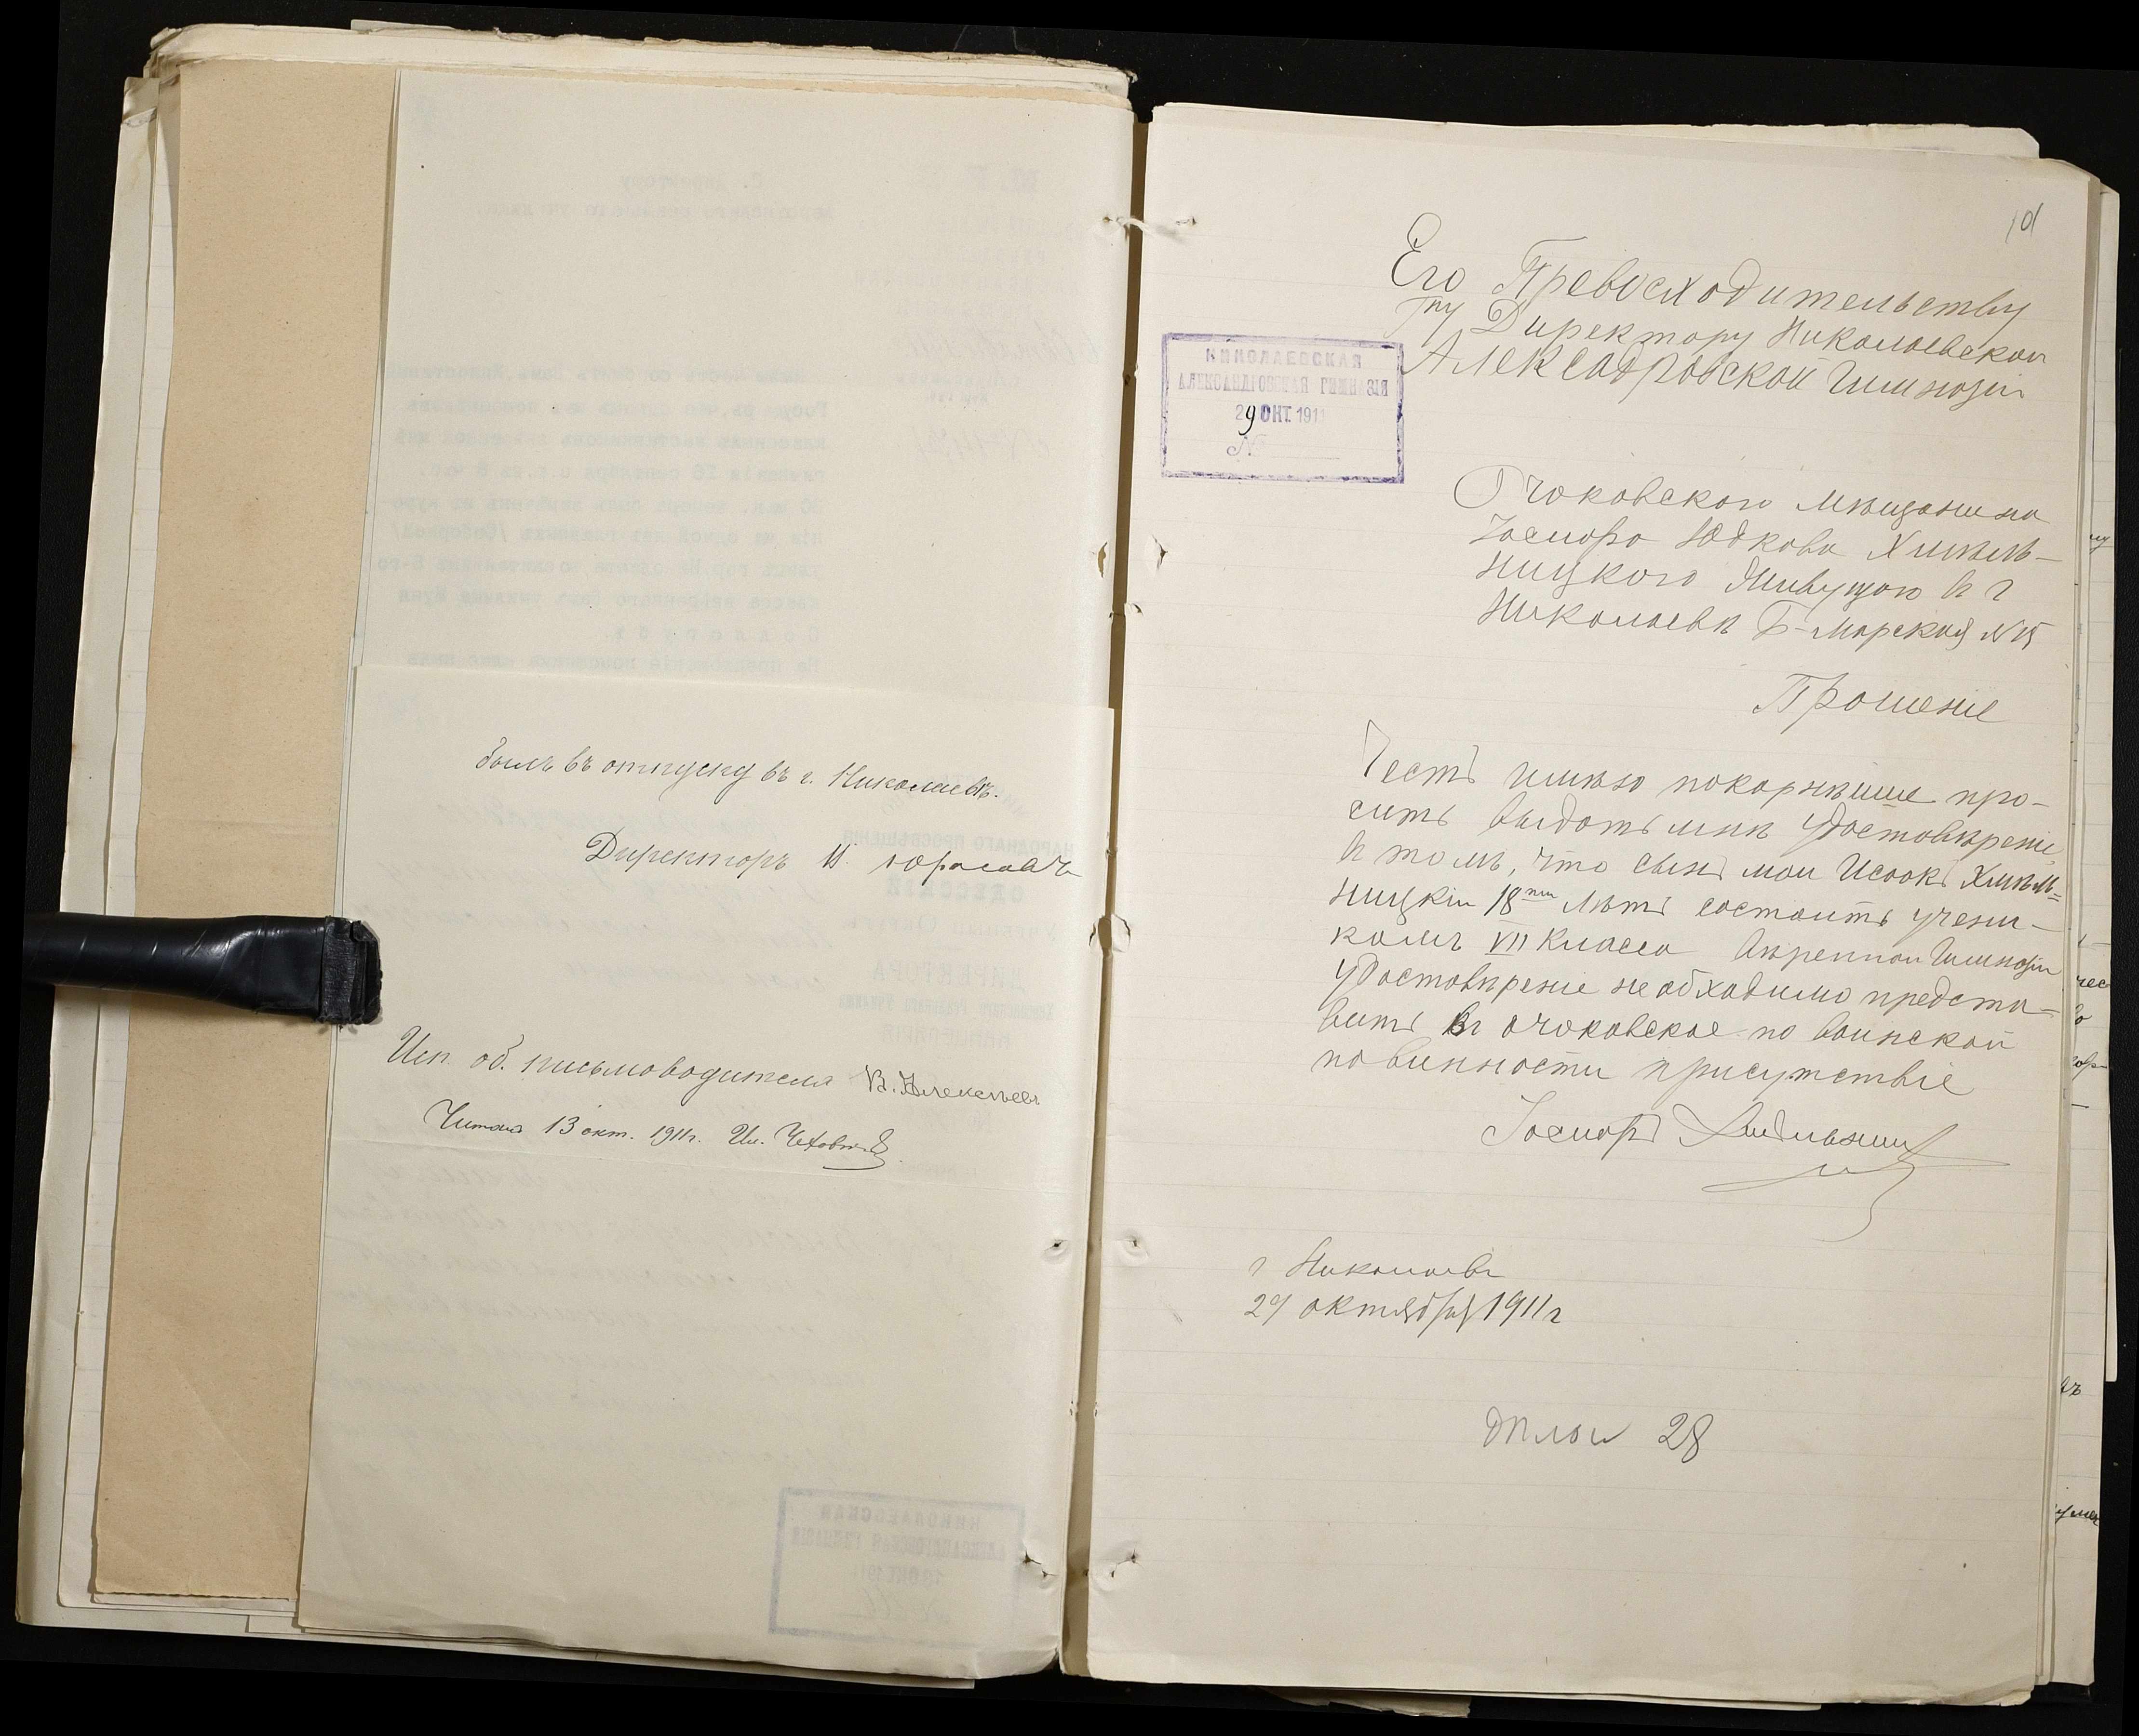 былъ въ отпуску въ г. Николаевѣ.
Директоръ
Исп. об. письмоводителя В. Алексѣевъ
Читалъ 13 окт. 1911 г.
101
Его Превосходительству
Гну Директору Николаевской
Александровской Гимназіи
НИКОЛАЕВСКАЯ
АЛЕКСАНДРОВСКАЯ ГИМНАЗІЯ
29 ОКТ. 1911
№
Очаковского мѣщанина
Юдкова Хмѣль-
ницкого Живущого в г
Николаевѣ Б-Морская N 15
Прошеніе
Честь имѣю покорнѣише про-
сить выдать мнѣ удостовѣреніе
в томъ, что сынъ мои Исаакъ Хмѣль=
ницкіи 18ти лѣтъ состоитъ учени-
комъ VII Класса ввѣреннои Гимназіи
удостовѣреніе необходимо предста-
вить въ очаковское по воинской
повинности присутствіе
г Николаевъ
29 октября 1911 г
28